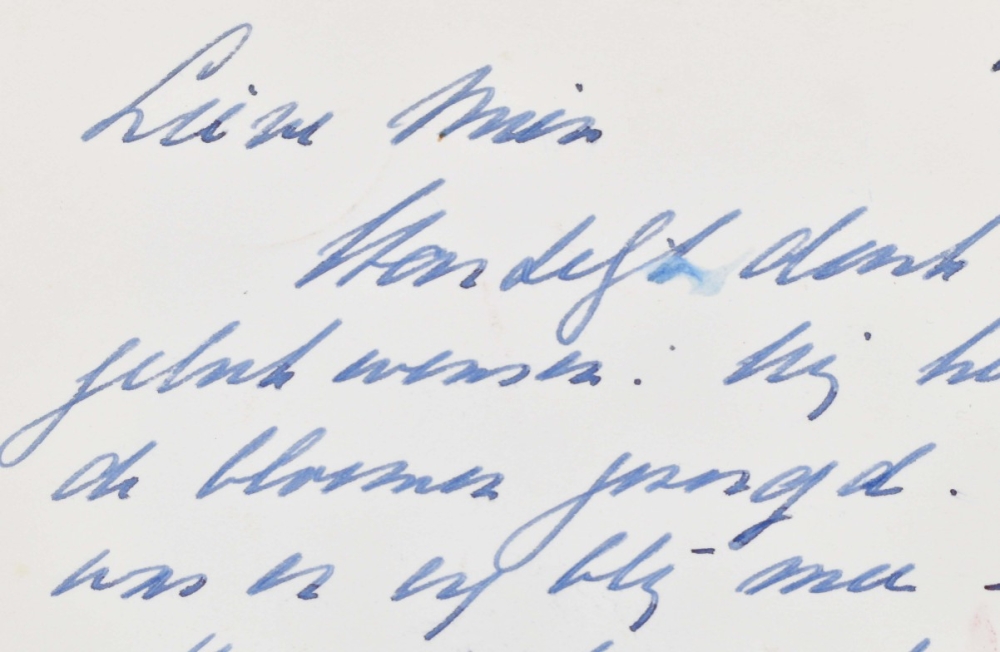 Lieve Mien
Hartelijk dank
geluk wensen. Hij he
de bloemen gezorgd.
was er erg blij mee -